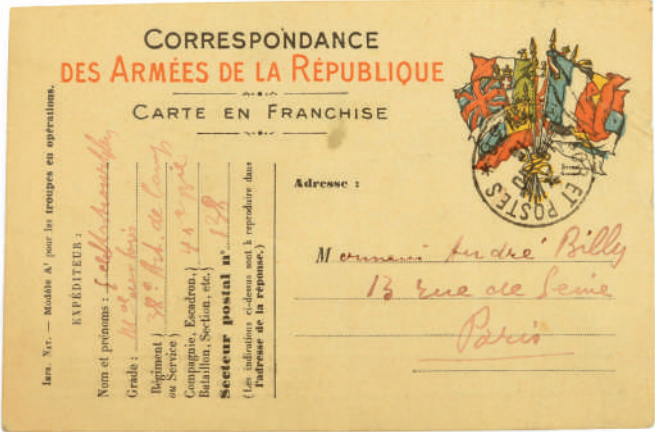 CORRESPONDANCE
DES ARMÉES DE LA RÉPUBLIQUE
CARTE EN FRANCHISE
Imp. Nat. — Modèle A¹ pour les troupes en opérations.
EXPÉDITEUR :
Nom et prénoms :
Grade : Mal des logis
Régiment ou Service) 38e Art. de Camp
Compagnie, Escadron, Bataillon, Section, etc.) 45e Bie
Secteur postal n° 138
(Les indications ci-dessus sont à reproduire dans
l'adresse de la réponse.)
ET POSTES *
Adresse :
Monsieur André Billy
13 rue de Seine
Paris